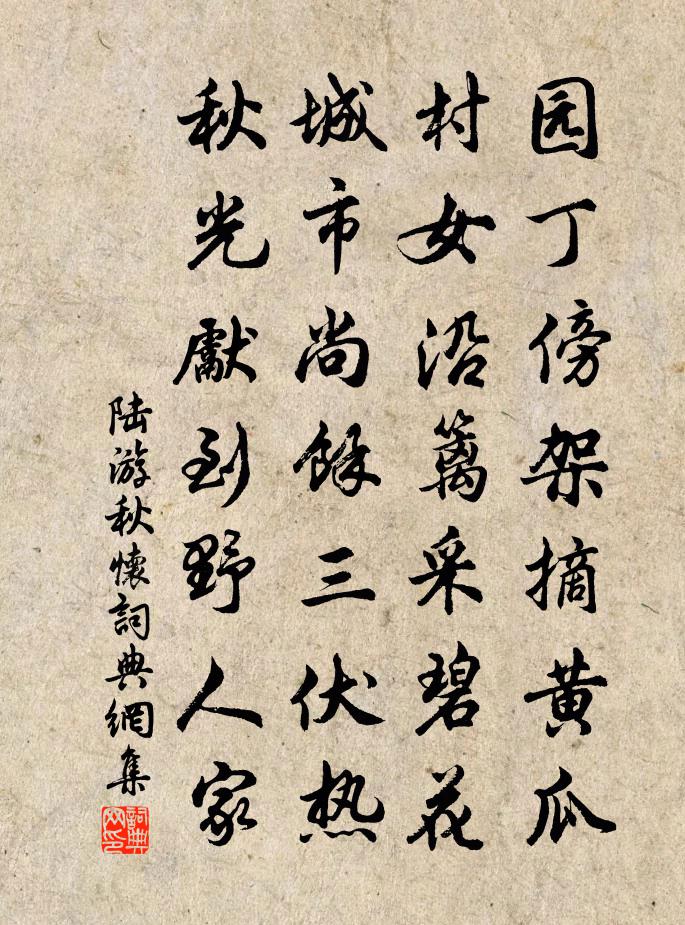 园丁傍架摘黄瓜
村女沿篱采碧花
城市尚馀三伏热
秋光獻到野人家
陆游秋懷詞典網集
詞典网印